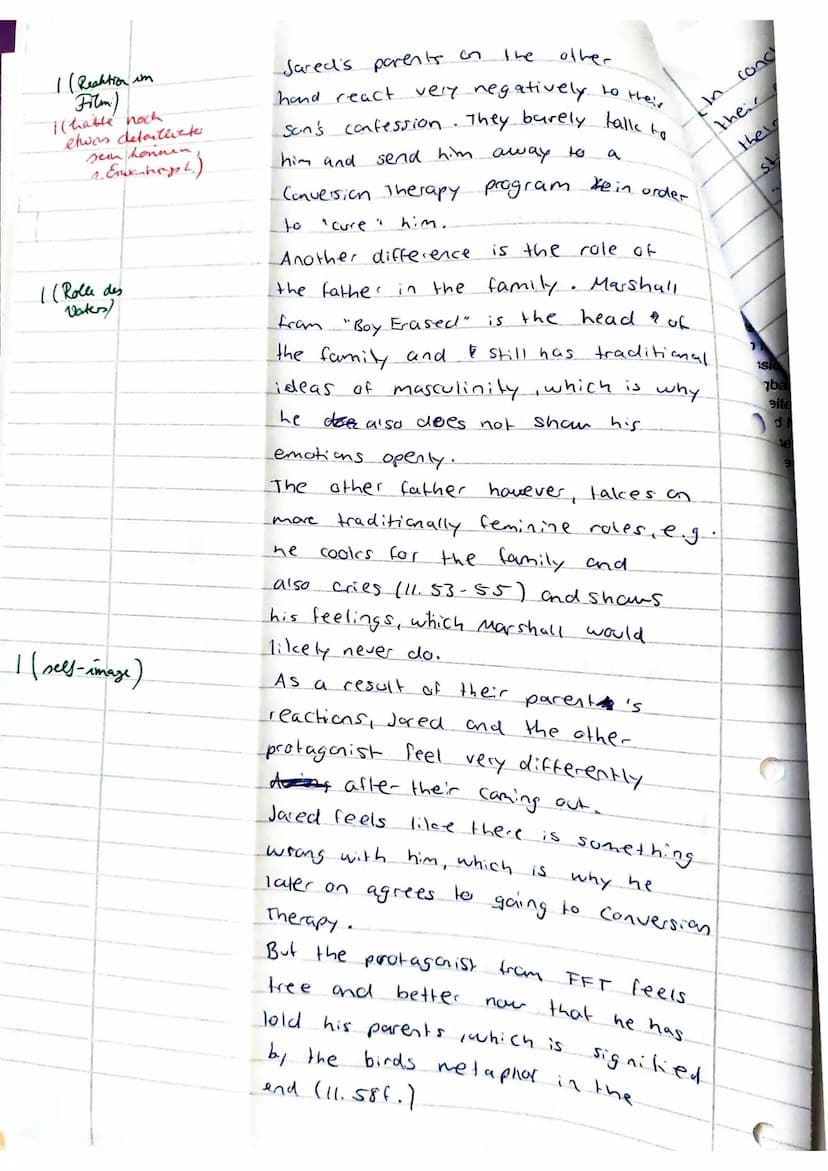 1 (Reaktion im
Film)
i (hätte noch
etwas detaillierter
sein können,
Jared's parents on the other
hand react very negatively to their
son's confession. They barely talk to
him and send him away to a
Conversion Therapy program in order
to "cure" him.
Another difference is the role of
1 (Rolle des
Vaters)
the father in the family. Marshall
from "Boy Erased" is the head of
the family and still has traditional
ideas of masculinity, which is why
he also does not show his
emotions openly.
The other father however, takes on
more traditionally feminine roles, e.g.
he cooks for the family and
also cries (ll. 53-55) and shows
his feelings, which Marshall would
likely never do.
1 (self-image)
As a result of their parent's
reactions, Jared and the other
protagonist feel very differently
after their coming out.
Jared feels like there is something
wrong with him, which is why he
later on agrees to going to Conversion
Therapy.
But the protagonist from FFT feels
free and better now that he has
told his parents, which is signified
by the birds metaphor in the
end (ll. 58f.)
In conc
their
their
st